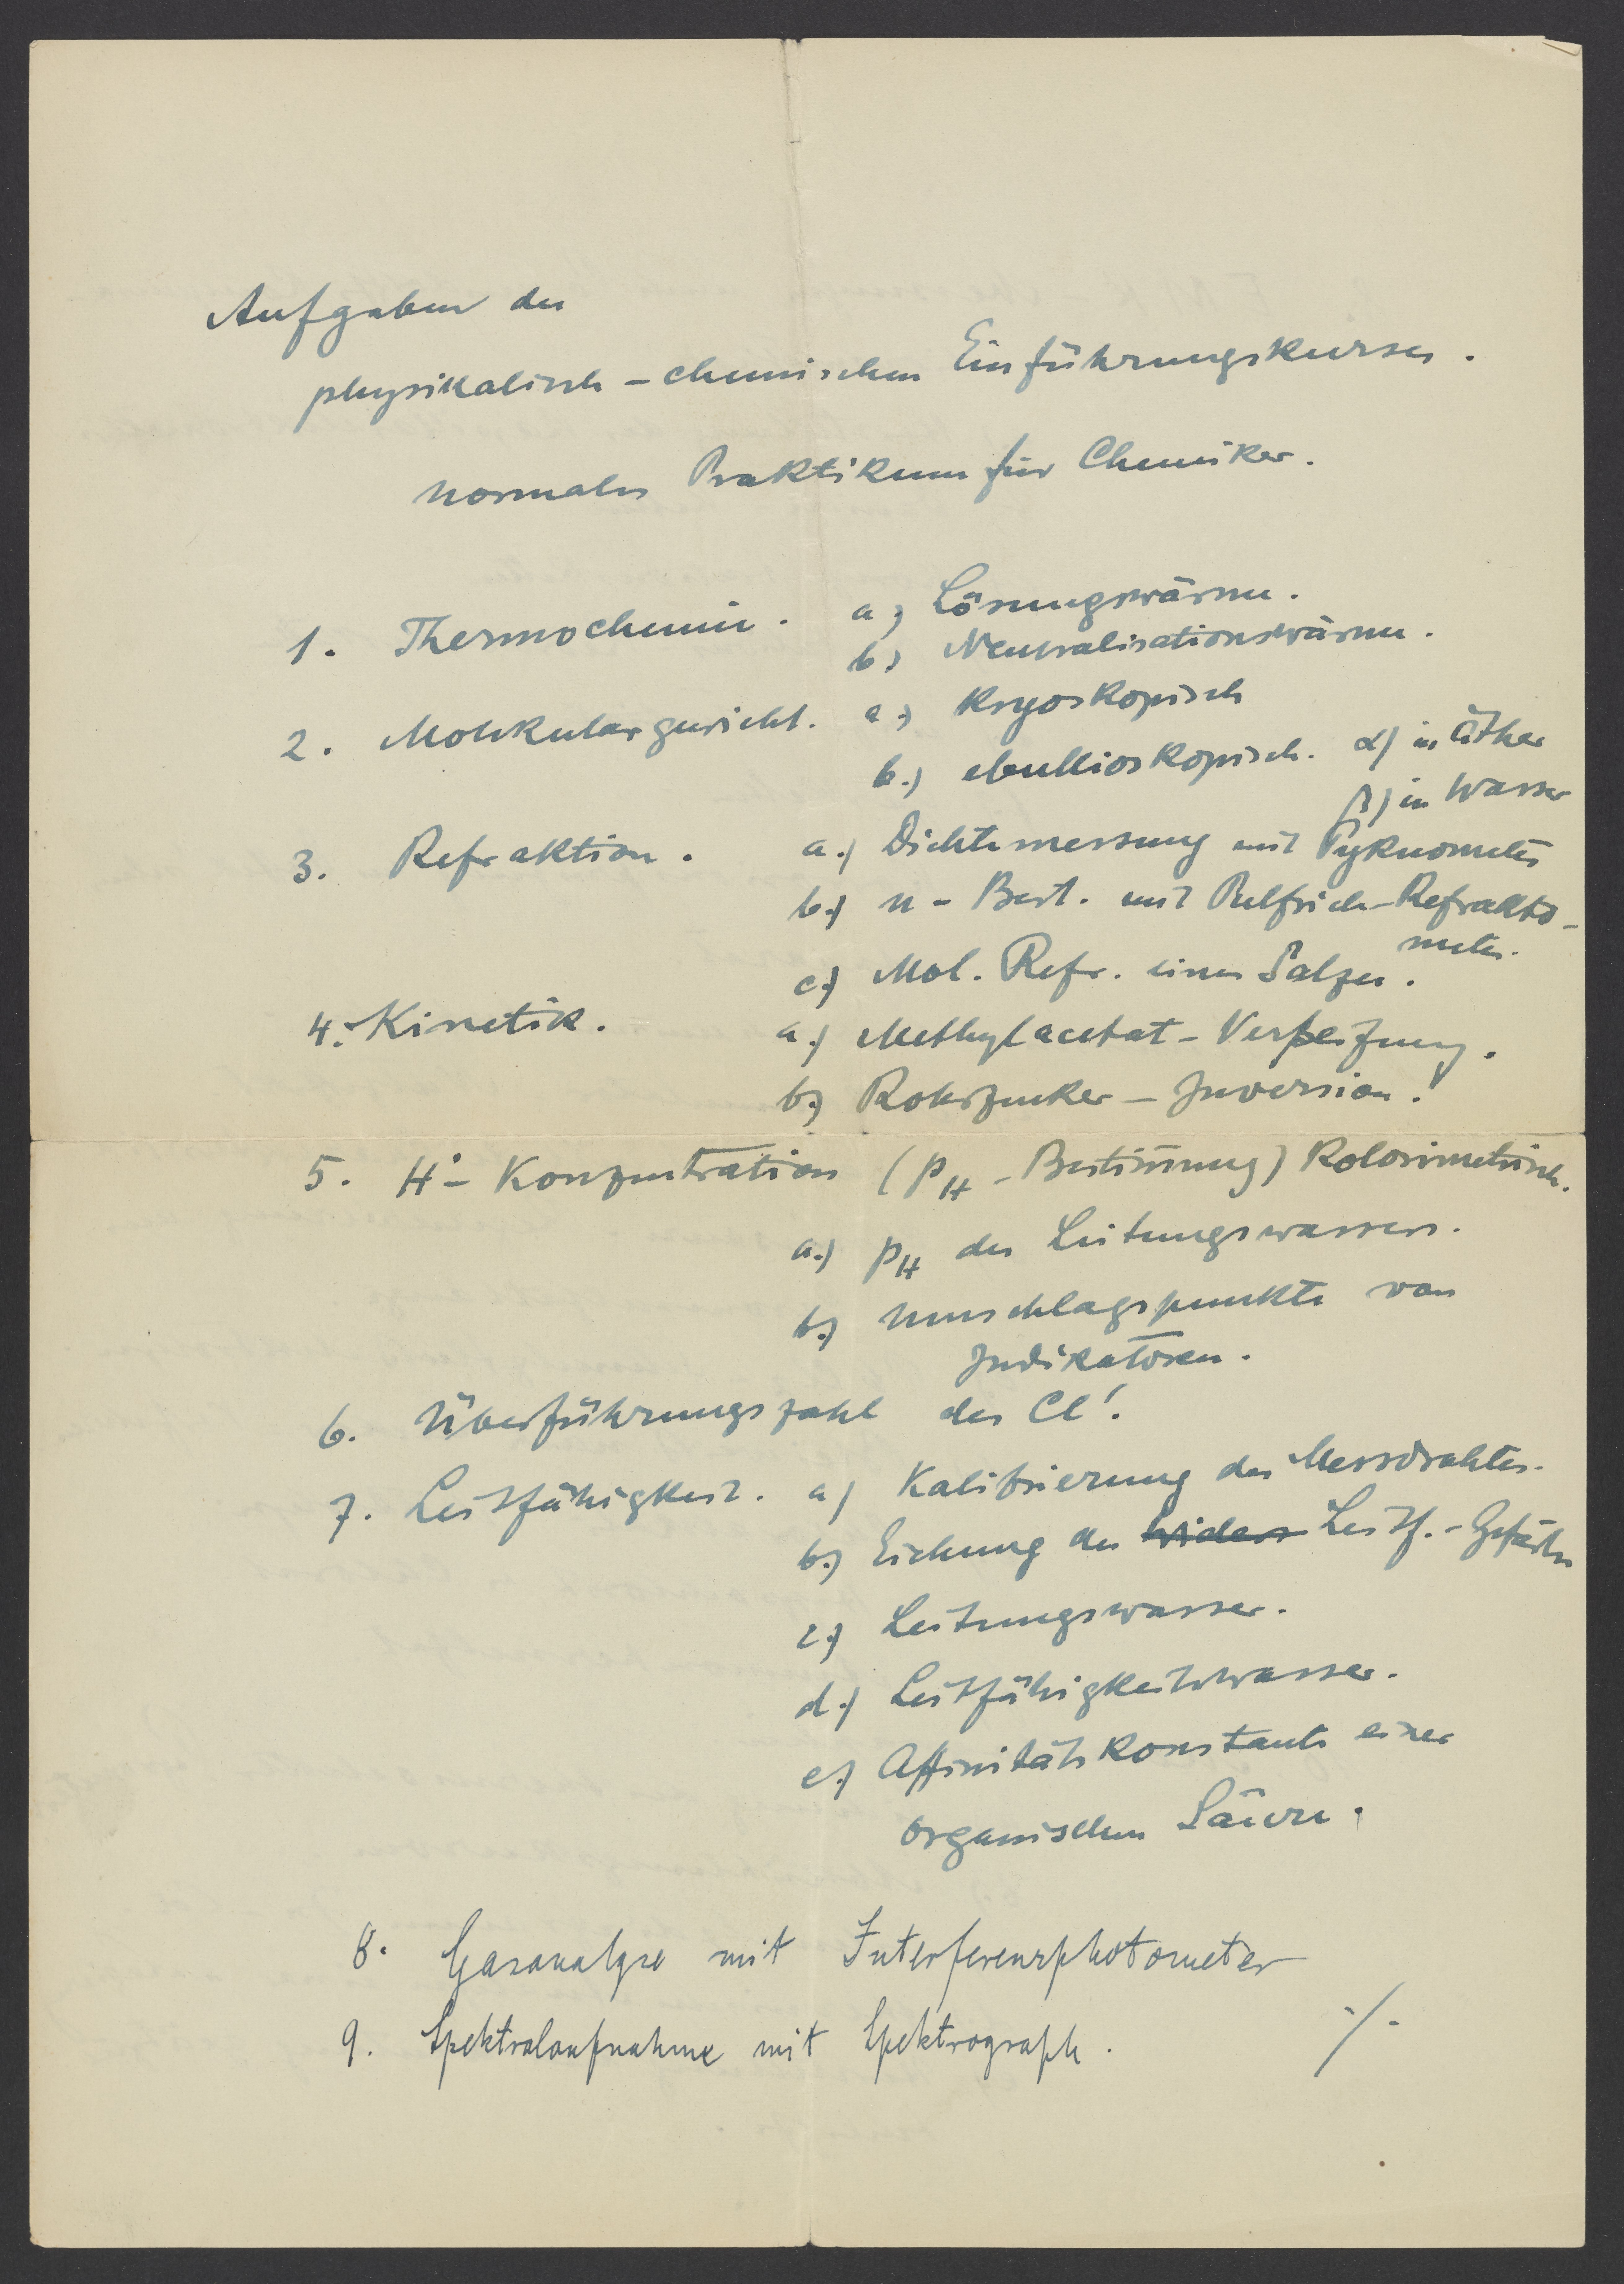 Aufgaben des
physikalisch-chemischen Einführungskurses.
normales Praktikum für Chemiker.
1. Thermochemie. a) Lösungswärme.
b) Neutralisationswärme.
2. Molekulargewicht. a.) Kryoskopisch
b.) ebullioskopisch. α) in Äther
β) in Wasser
3. Refraktion. a.) Dichtemessung mit Pyknometer
b.) n-Best. mit Pulfrich-Refrakto-
meter.
c.) Mol. Refr. eines Salzes.
4. Kinetik. a.) Methylacetat-Verseifung.
b.) Rohrzucker-Inversion!
5. H•-Konzentration (pH-Bestim̅ung) Kolorimetrisch.
a.) pH des Leitungswassers.
b.) Umschlagspunkte von
Indikatoren.
6. Überführungszahl des Cl'.
7. Leitfähigkeit. a) Kalibrierung des Messdrahtes.
b.) Eichung des Leitf.-Gefäßes
c.) Leitungswasser.
d.) Leitfähigkeitswasser.
e.) Affinitätskonstante einer
organischen Säure.
8. Gasanalyse mit Interferenzphotometer
9. Spektralaufnahme mit Spektrograph. ./.